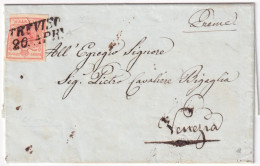 TREVISO
20. APR.
Preme
All'Egregio Signore
Sig. Pietro Cavaliere Bigaglia
Venezia